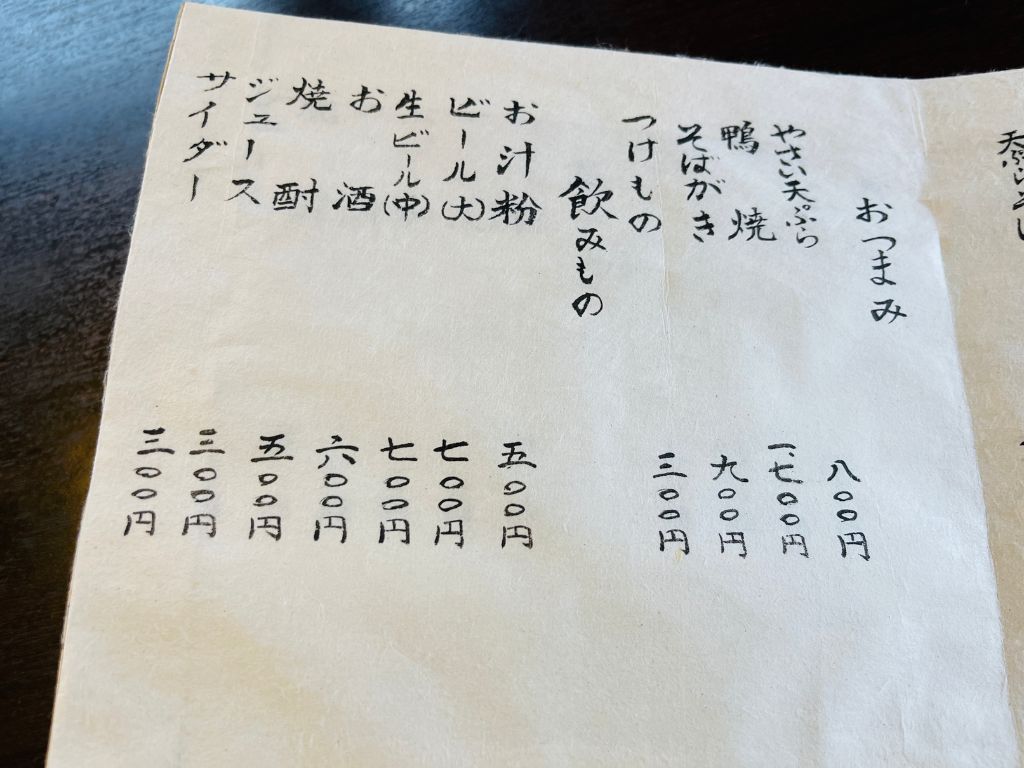 天ぷら
おつまみ
やさい天ぷら 八〇〇円
鴨焼 一、七〇〇円
そばがき 九〇〇円
つけもの 三〇〇円
飲みもの
お汁粉 五〇〇円
ビール(大) 七〇〇円
生ビール(中) 七〇〇円
お酒 六〇〇円
焼酎 五〇〇円
ジュース 三〇〇円
サイダー 三〇〇円